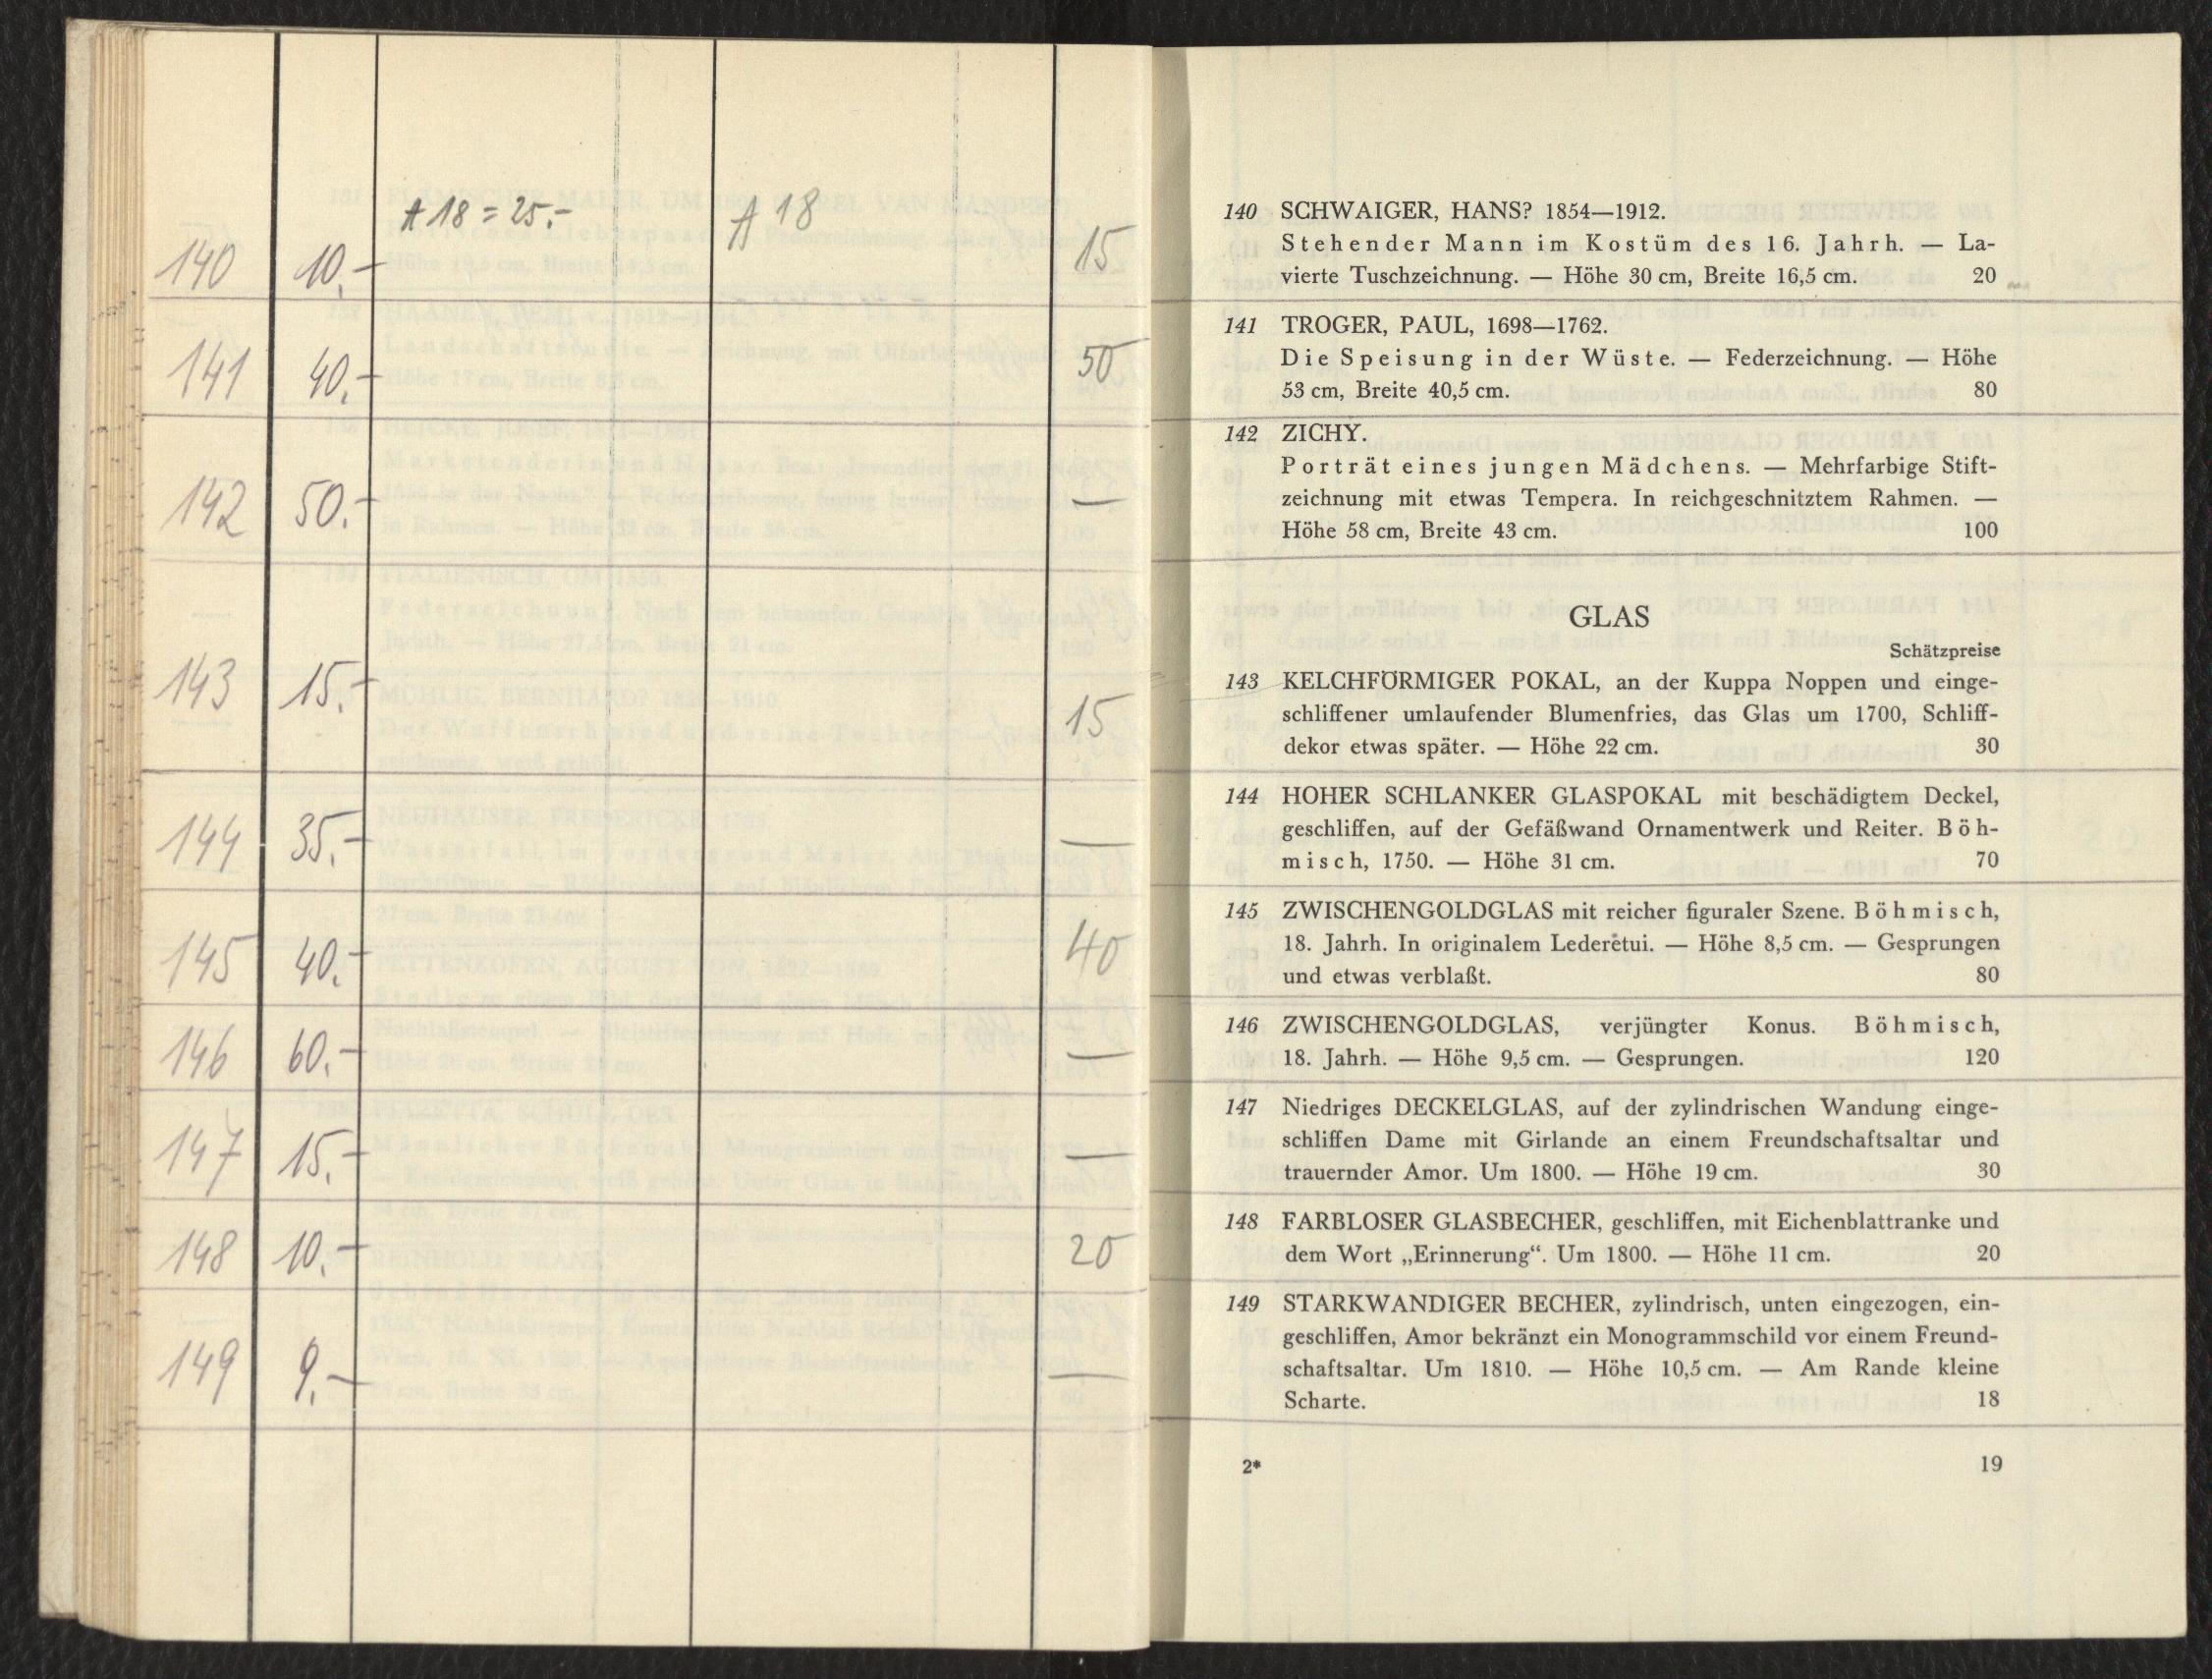 A 18 = 25.- A 18
140 10.- 15
141 40.- 50
142 50.- —
143 15.- 15
144 35.- —
145 40.- 40
146 60.- —
147 15.- —
148 10.- 20
149 9.- —
140 SCHWAIGER, HANS? 1854—1912.
Stehender Mann im Kostüm des 16. Jahrh. — La-
vierte Tuschzeichnung. — Höhe 30 cm, Breite 16,5 cm. 20
141 TROGER, PAUL, 1698—1762.
Die Speisung in der Wüste. — Federzeichnung. — Höhe
53 cm, Breite 40,5 cm. 80
142 ZICHY.
Porträt eines jungen Mädchens. — Mehrfarbige Stift-
zeichnung mit etwas Tempera. In reichgeschnitztem Rahmen. —
Höhe 58 cm, Breite 43 cm. 100
GLAS
Schätzpreise
143 KELCHFÖRMIGER POKAL, an der Kuppa Noppen und einge-
schliffener umlaufender Blumenfries, das Glas um 1700, Schliff-
dekor etwas später. — Höhe 22 cm. 30
144 HOHER SCHLANKER GLASPOKAL mit beschädigtem Deckel,
geschliffen, auf der Gefäßwand Ornamentwerk und Reiter. Böh-
misch, 1750. — Höhe 31 cm. 70
145 ZWISCHENGOLDGLAS mit reicher figuraler Szene. Böhmisch,
18. Jahrh. In originalem Lederetui. — Höhe 8,5 cm. — Gesprungen
und etwas verblaßt. 80
146 ZWISCHENGOLDGLAS, verjüngter Konus. Böhmisch,
18. Jahrh. — Höhe 9,5 cm. — Gesprungen. 120
147 Niedriges DECKELGLAS, auf der zylindrischen Wandung einge-
schliffen Dame mit Girlande an einem Freundschaftsaltar und
trauernder Amor. Um 1800. — Höhe 19 cm. 30
148 FARBLOSER GLASBECHER, geschliffen, mit Eichenblattranke und
dem Wort „Erinnerung“. Um 1800. — Höhe 11 cm. 20
149 STARKWANDIGER BECHER, zylindrisch, unten eingezogen, ein-
geschliffen, Amor bekränzt ein Monogrammschild vor einem Freund-
schaftsaltar. Um 1810. — Höhe 10,5 cm. — Am Rande kleine
Scharte. 18
2* 19